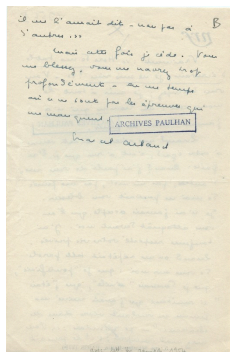 il me l'aurait dit - non pas à B
d'autres...
Mais cette fois je cède. Vous
me blessez, vous me navrez trop
profondément - en un temps
où ce ne sont pas les épreuves qui
me manquent.
ARCHIVES PAULHAN
Marcel Arland